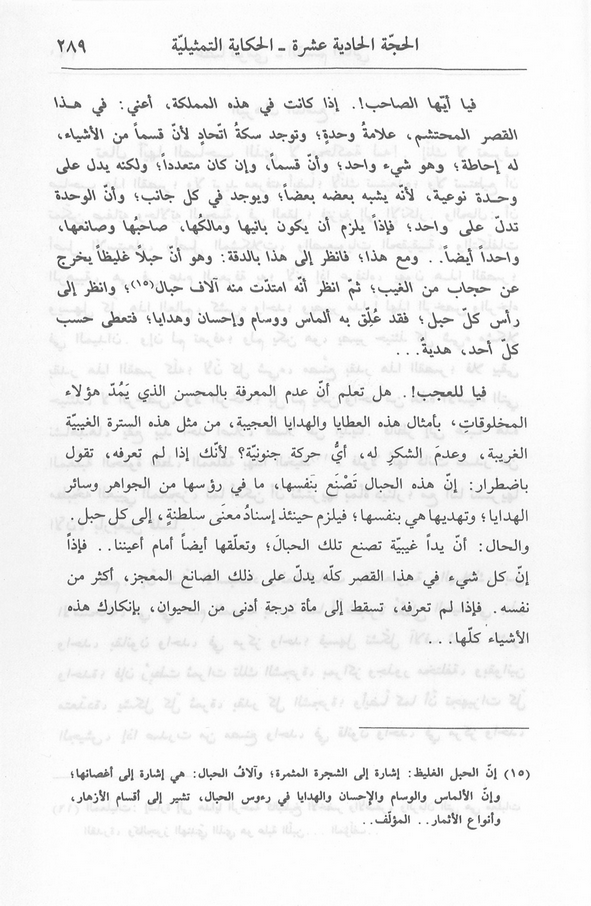 الحجّة الحادية عشرة ـ الحكاية التمثيليّة ٢٨٩
فيا أيّها الصاحب!. إذا كانت في هذه المملكة، أعني: في هـذا
القصر المحتشم، علامةُ وحدةٍ؛ وتوجد سكةُ اتّحادٍ لأنّ قسماً من الأشياء،
له إحاطة؛ وهو شيء واحد؛ وأنّ قسماً، وإن كان متعدداً؛ ولكنه يدل على
وحـدة نوعية، لأنّه يشبه بعضه بعضاً؛ ويوجد في كل جانب؛ وأنّ الوحدة
تدلّ على واحد؛ فإذاً يلزم أن يكون بانيها ومالكُها، صاحبُها وصانعها،
واحداً أيضاً.. ومع هذا؛ فانظر إلى هذا بالدقة: وهو أنّ حبلاً غليظاً يخرج
عن حجاب من الغيب؛ ثمّ انظر أنّه امتدّت منه آلاف حبال(١٥)؛ وانظر إلى
رأس كلّ حبل؛ فقد عُلِّق به ألماس ووسام وإحسان وهدايا؛ فتعطى حسب
كلّ أحد، هديةً...
فيا للعجب!. هل تعلم أنّ عدم المعرفة بالمحسن الذي يَمُدّ هؤلاء
المخلوقاتِ، بأمثال هذه العطايا والهدايا العجيبة، من مثل هذه السترة الغيبيّة
الغريبة، وعدمَ الشكرِ له، أيُّ حركة جنونيّة؟ لأنّك إذا لم تعرفه، تقول
باضطرار: إنّ هذه الحبال تَصْنَع بَنفسها، ما في رؤسها من الجواهر وسائر
الهدايا؛ وتهديها هي بنفسها؛ فيلزم حينئذ إسنادُ معنَى سلطنةٍ، إلى كل حبل.
والحال: أنّ يداً غيبيّة تصنع تلك الحبالَ؛ وتعلّقها أيضاً أمام أعيننا.. فإذاً
إنّ كل شيء في هذا القصر كلّه يدلّ على ذلك الصانع المعجز، أكثر من
نفسه. فإذا لم تعرفه، تسقط إلى مأة درجة أدنى من الحيوان، بإنكارك هذه
الأشياء كلّها...
(١٥) إنّ الحبل الغليظ: إشارة إلى الشجرة المثمرة؛ وآلافُ الحبال: هي إشارة إلى أغصانها؛
وإنّ الألماس والوسام والإحسان والهدايا في رءوس الحبال، تشير إلى أقسام الأزهار،
وأنواع الأثمار.. المؤلّف..